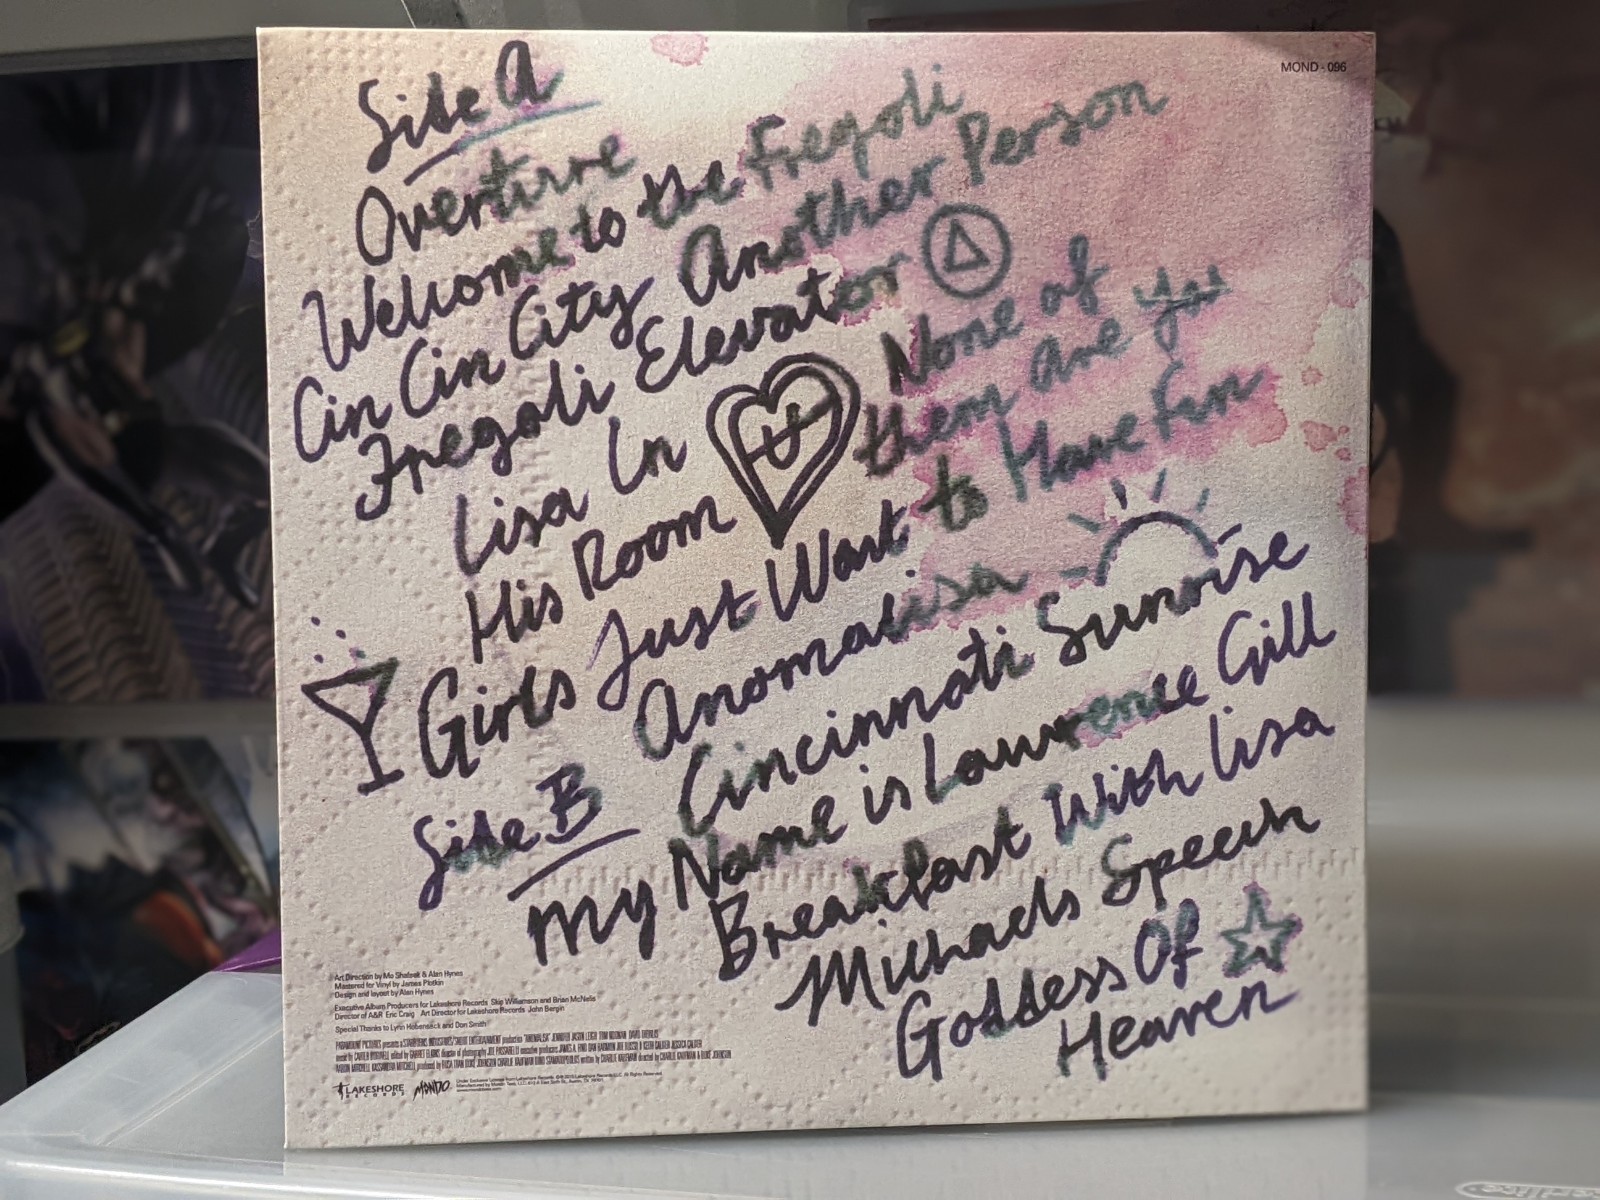 MOND - 096
Side A
Overture
Welcome to the Fregoli
Cin Cin City Another Person
Fregoli Elevator
Lisa In His Room
None of them are You
Girls Just Want to Have Fun
Anomalisa
Side B
Cincinnati Sunrise
My Name is Lawrence Gill
Breakfast With Lisa
Michaels Speech
Goddess Of Heaven
Art Direction by Mo Shafeek & Alan Hynes
Mastered for Vinyl by James Plotkin
Design and layout by Alan Hynes
Executive Album Producers for Lakeshore Records Skip Williamson and Brian McNelis
Director of A&R Eric Craig Art Director for Lakeshore Records John Bergin
Special Thanks to Lynn Hobensack and Don Smith
LAKESHORE RECORDS
MONDO